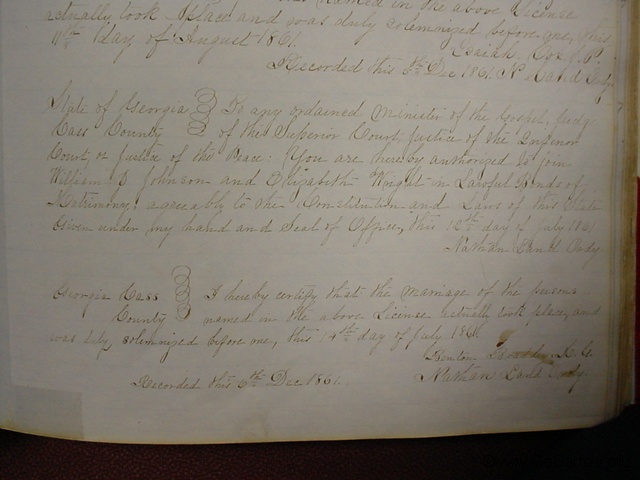 named in the above License
actually took place and was duly solemnized before me, this
11th day of August 1861.
Recorded this 6th Dec 1861. N. Land Ordy
State of Georgia To any ordained Minister of the Gospel, Judge
Cass County of the Superior Court, Justice of the Inferior
Court, or Justice of the Peace: You are hereby authorized to join
William D Johnson and Elizabeth Wright in Lawful Bonds of
Matrimony, agreeably to the Constitution and Laws of this State
Given under my hand and Seal of Office, this 12th day of July 1861
Nathan Land Ordy
Georgia Cass I hereby certify that the marriage of the persons
County named in the above License actually took place, and
was duly solemnized before me, this 14th day of July 1861.
Recorded this 6th Dec 1861. Nathan Land Ordy